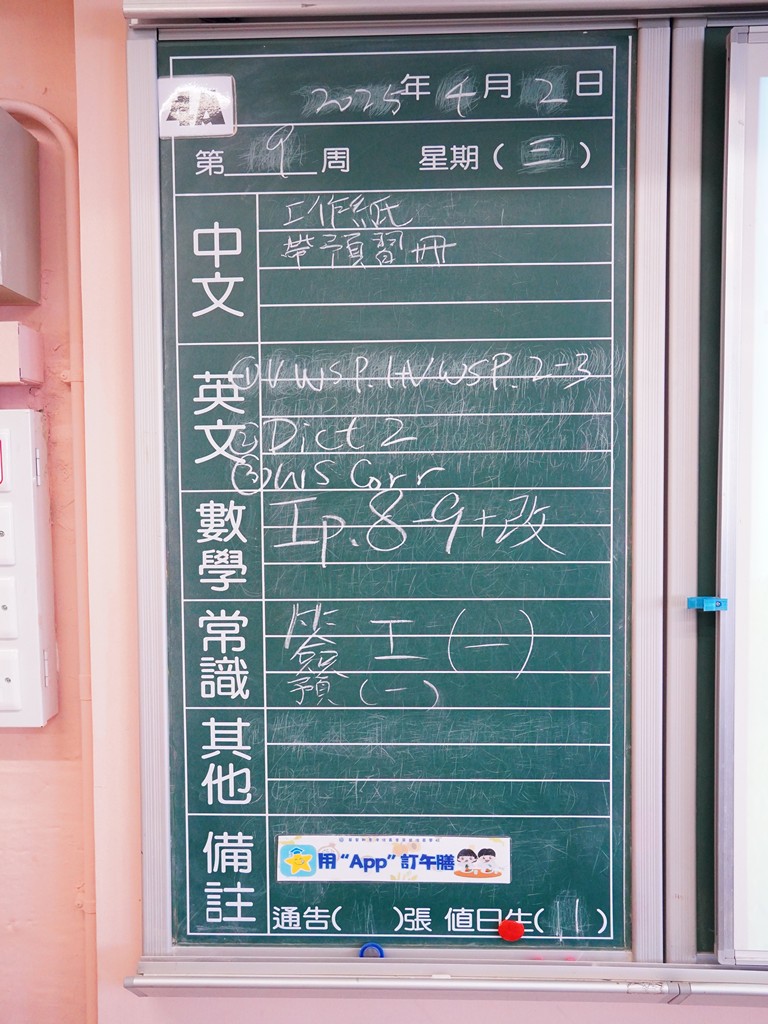 4A
2025年4月2日
第9周 星期(三)
中文
工作紙
帶預習冊
英文
①V WSP.1+V WSP.2-3
②Dict 2
③WS Corr
數學
工p.8-9+改
常識
簽 工(一)
預(一)
其他
備註
用“App”訂午膳
通告( )張 值日生(11)